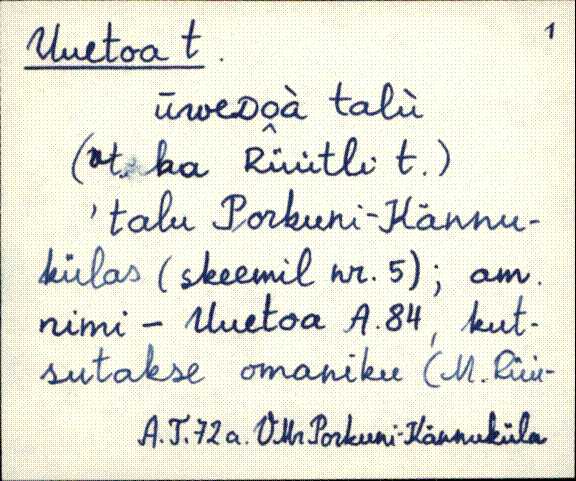 Uuetoa t. 1
ūweᴅo̭à talù
(vt. ka Rüütli t.)
'talu Porkuni-Kännu-
külas (skeemil nr. 5); am.
nimi – Uuetoa A.84, kut-
sutakse omaniku (M. Rüü-
A.T.72a. VMr Porkuni-Kännuküla